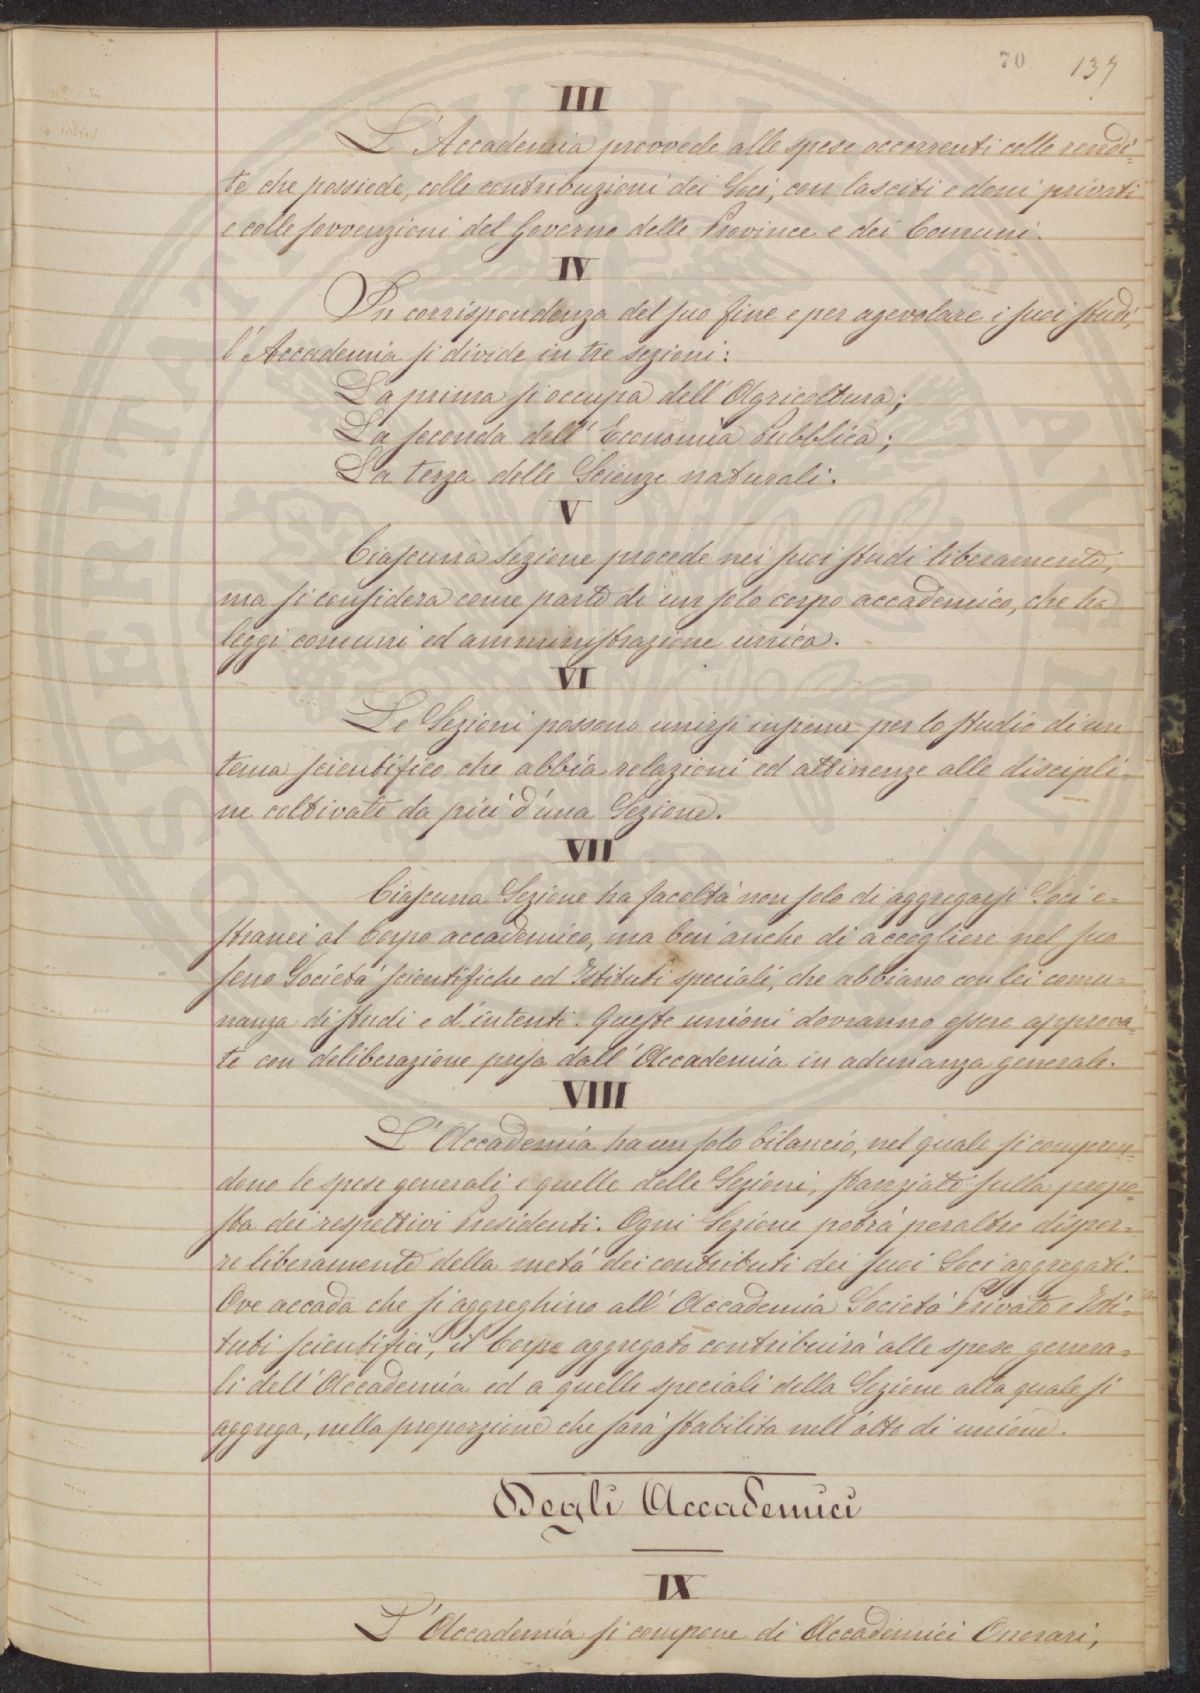 70 137
III
L'Accademia provvede alle spese occorrenti colle rendi-
te che possiede, colle contribuzioni dei Soci, con lasciti e doni privati
e colle sovvenzioni del Governo delle Province e dei Comuni.
IV
In corrispondenza del suo fine e per agevolare i suoi studi,
l'Accademia si divide in tre sezioni:
La prima si occupa dell'Agricoltura;
La seconda dell'Economia Pubblica;
La terza delle Scienze naturali.
V
Ciascuna Sezione procede nei suoi studi liberamente,
ma si considera come parte di un solo corpo accademico, che ha
leggi comuni ed amministrazione unica.
VI
Le Sezioni possono unirsi insieme per lo studio di un
tema scientifico che abbia relazioni ed attinenze alle discipli-
ne coltivate da più d'una Sezione.
VII
Ciascuna Sezione ha facoltà non solo di aggregarsi Soci e-
stranei al Corpo accademico, ma ben'anche di accogliere nel suo
seno Società scientifiche ed Istituti speciali, che abbiano con lei comu-
nanza di studi e d'intenti. Queste unioni dovranno essere approva-
te con deliberazione presa dall'Accademia in adunanza generale.
VIII
L'Accademia ha un solo bilancio, nel quale si compren-
dono le spese generali e quelle delle Sezioni, stanziate sulla propo-
sta dei respettivi Presidenti. Ogni Sezione potrà peraltro dispor-
re liberamente della metà dei contributi dei suoi Soci aggregati.
Ove accada che si aggreghino all'Accademia Società Private e Isti-
tuti scientifici, il Corpo aggregato contribuirà alle spese genera-
li dell'Accademia ed a quelle speciali della Sezione alla quale si
aggrega, nella proporzione che sarà stabilita nell'atto di unione.
Degli Accademici
IX
L'Accademia si compone di Accademici Onorari,